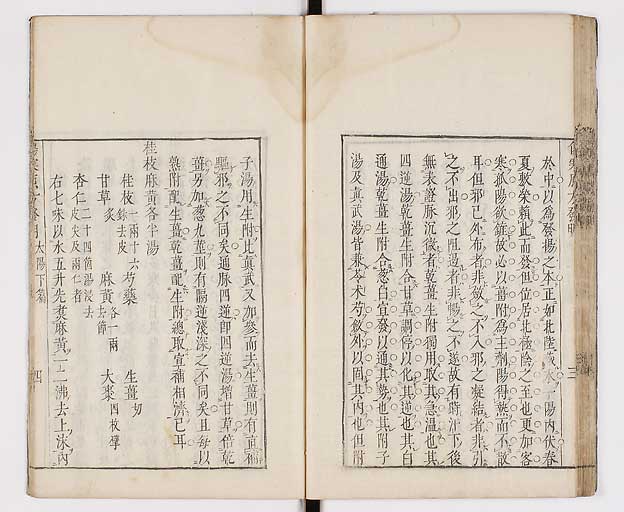 於中以為發揚之本正如北陸
陽內伏春
夏敷榮賴此而發但位居北極陰之至也更加客
寒孤陽欲雖故必以
附為主劑陽得
而不散
耳但邪已外布者非斂之不入邪之凝結者非引
之不出邪之阻遏者非暢之不遂故有時汗下後
無表證脉沉微者乾薑生附獨用取其急溫也其
四逆湯乾薑生附合甘草調停以化其逆也其白
通湯乾薑生附合葱白宣發以通其勢也其附子
湯及真武湯皆兼苓朮芍斂外以固其內也但附
子湯用生附比真武又加參而去生薑則有直補
驅邪之不同矣通脉四逆卽四逆湯增甘草倍乾
薑另加葱九莖則有關逆淺深之不同矣且每以
熟附配生薑乾薑配生附總取宣補相濟已耳
桂枝麻黃各半湯
桂枝 一兩十六銖去皮 芍藥 生薑 切
甘草 炙 麻黃 去節 各一兩 大棗 四枚擘
杏仁 二十四箇湯浸去皮尖及兩仁者
右七味以水五升先煑麻黃一二沸去上沫內
太陽下篇
四